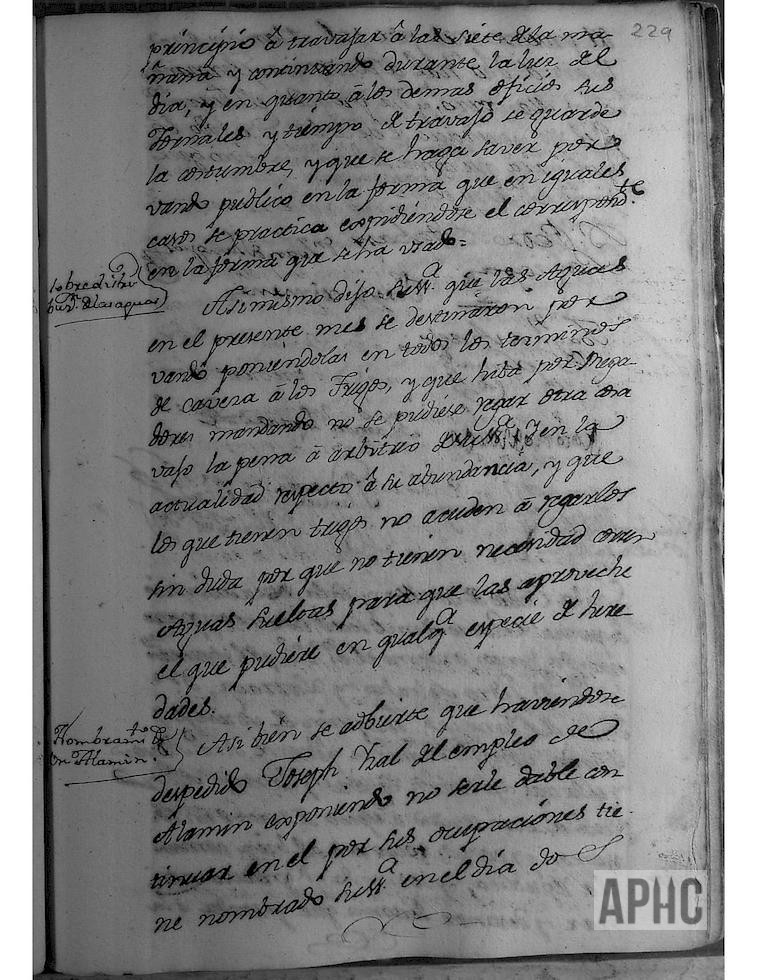 229
principio â travajar â las siete de la ma-
ñana y continuando durante la luz del
dia, y en quanto â los demas oficios sus
Jornales y tiempo de travajo se guarde
la costumbre, y que se haga saver por
vando publico en la forma que en iguales
casos se practica expidiendose el correspond.te
en la forma que se ha usado=
sobre distri
bu.n de las aguas
Asi mismo dijo su S.a que las Aguas
en el presente mes se destinaron por
vando poniendolas en todos los terminos
de cavera â los Trigos, y que hiba por Rega-
dores mandando no se pudiese regar otra cosa
vajo la pena â arbitrio de su S.a Y en la
actualidad respecto â su abundancia, y que
los que tienen trigos no acuden â regarlos
sin duda por que no tienen necesidad corren
Aguas sueltas para que las aproveche
el que pudiere en qualq.a especie de here
dades.
Nombram.to de
un Alamin.
Asi bien se adbierte que haviendose
despedido Joseph Zal del empleo de
Alamin exponiendo no serle dable con
tinuar en el por sus ocupaciones tie-
ne nombrado su S.a en el dia do
APHC